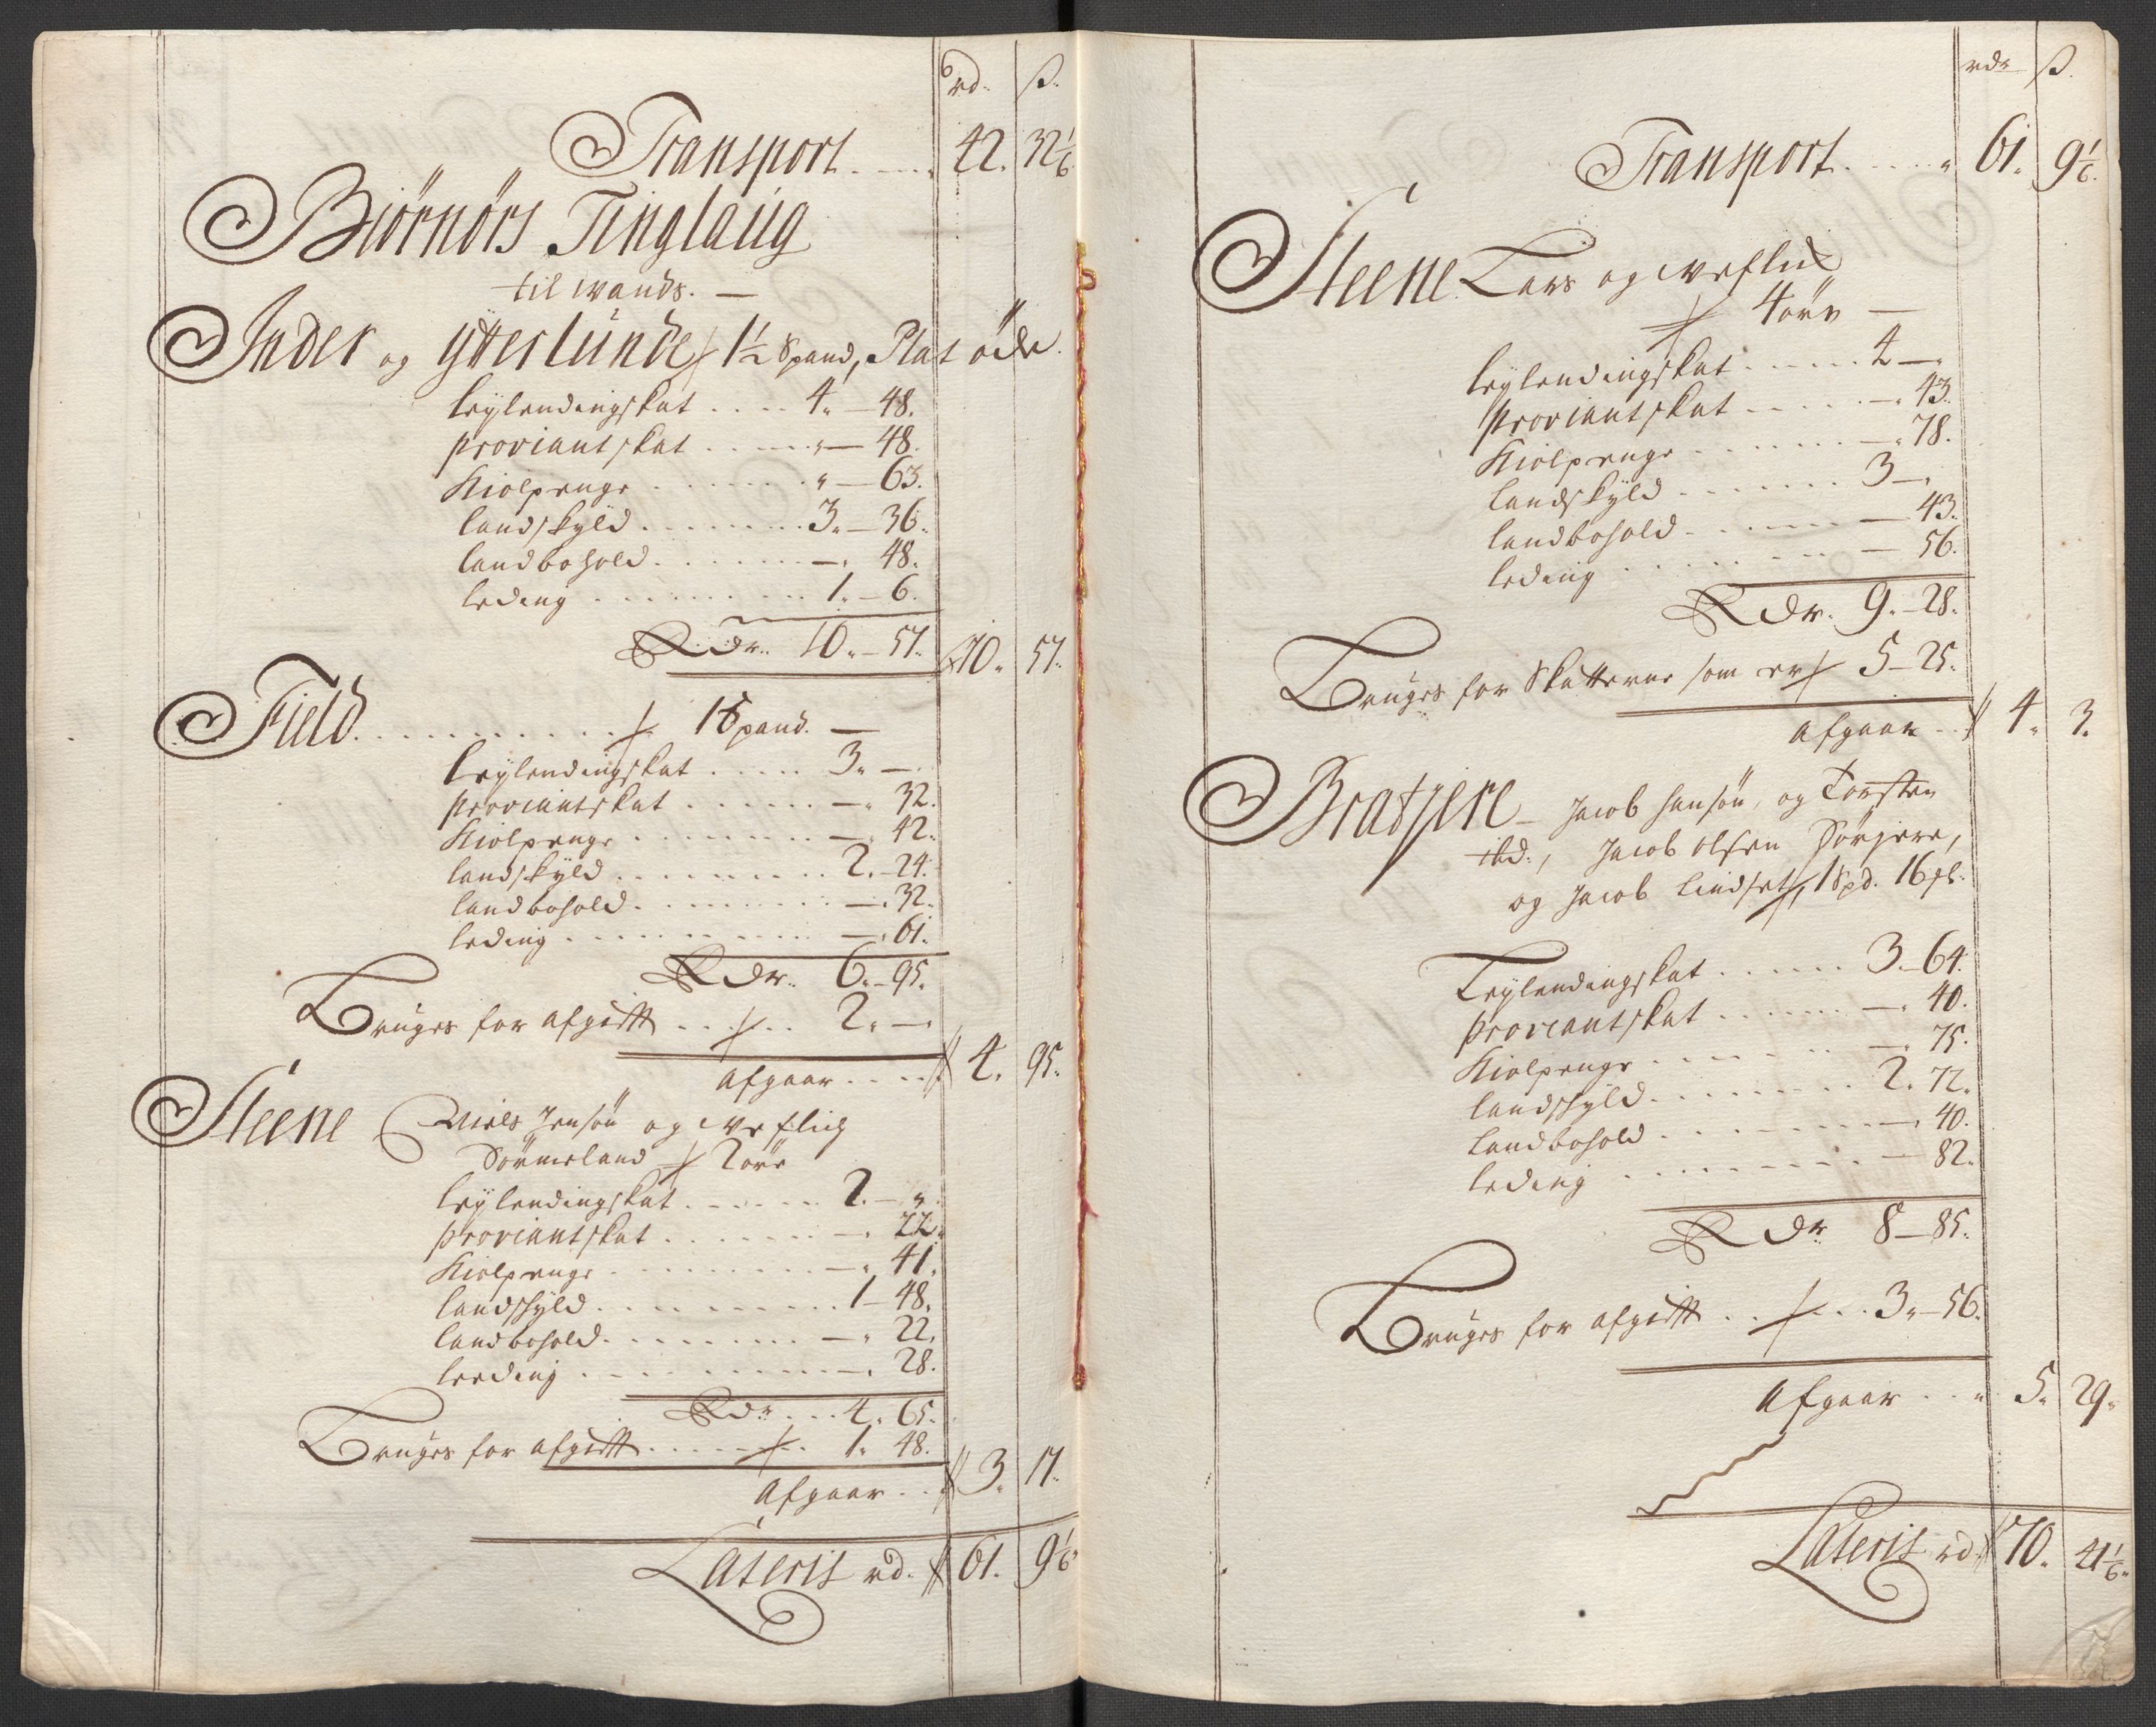 6
rd. ß.
Transport . . . . 42. 32 1/6
Biörnörs Tinglaüg
til wands. —
Inder og ÿtterlünde / 1½ Spand, Plat öde
leÿlendingskat . . . . 4. — 48.
proviantskat . . . . . „ — 48.
Kiolpenge . . . . . . „ — 63.
landskÿld . . . . . . 3. — 36.
landbohold . . . . . . —. 48.
leding . . . . . . . 1. — 6.
Rdr. 10. — 57. 10. 57.
Field . . . . . . . . . 1 Spand. —
leÿlendingskat . . . . . 3. —.
proviantskat . . . . . . —. 32.
Kiolpenge . . . . . . . —. 42.
landskÿld . . . . . . . 2. — 24.
landbohold . . . . . . . —. 32.
leding . . . . . . . . . —. 61.
Rdr. 6. — 95.
Bruges for afgifft . . . . . 2. —.
Afgaar . . . . 4. 95.
Steene Niels Jensön og
Sörmeland 2 öre
leÿlendingskat . . . . . . 2. — „
proviantskat . . . . . . . —. 22.
Kiolpenge . . . . . . . . —. 41.
landskÿld . . . . . . . . 1 — 48.
landbohold . . . . . . . —. 22.
leeding . . . . . . . . . —. 28.
Rdr. . . . 4. 65.
Bruges for afgifft . . . . . . 1. 48.
Afgaar . . 3. 17.
Lateris rd. 61. 9 1/6
rdr ß.
Transport . . . . „ 61. 9 1/6.
Steene Lars og
4 öre —
leÿlendingskat . . . . . 4 — „
proviantskat . . . . . —. 43.
Kiolpenge . . . . . . —. 78.
landskÿld . . . . . . . 3 —.
landbohold . . . . . . — 43.
leding . . . . . . . . — 56.
Rdr. 9. — 28.
Bruges for Skatterne som er / 5 — 25.
Afgaar . . 4. 3.
Bratjere — Jacob hansön, og Torsten
ibd., Jacob olsen Sörjere,
og Jacob Lindset, 1 Spd. 16 1/2.
Leÿlendingskat . . . . . . 3. — 64.
proviantskat . . . . . . —. 40.
Kiolpenge . . . . . . . —. 75.
landskÿld . . . . . . . 2. 72.
Landbohold . . . . . . . —. 40.
leding . . . . . . . . — 82.
Rdr 8 — 85.
Bruges for afgifft . . . . . 3. — 56.
Afgaar . . „ 5. 29.
Lateris rd. 70. 41 1/6.